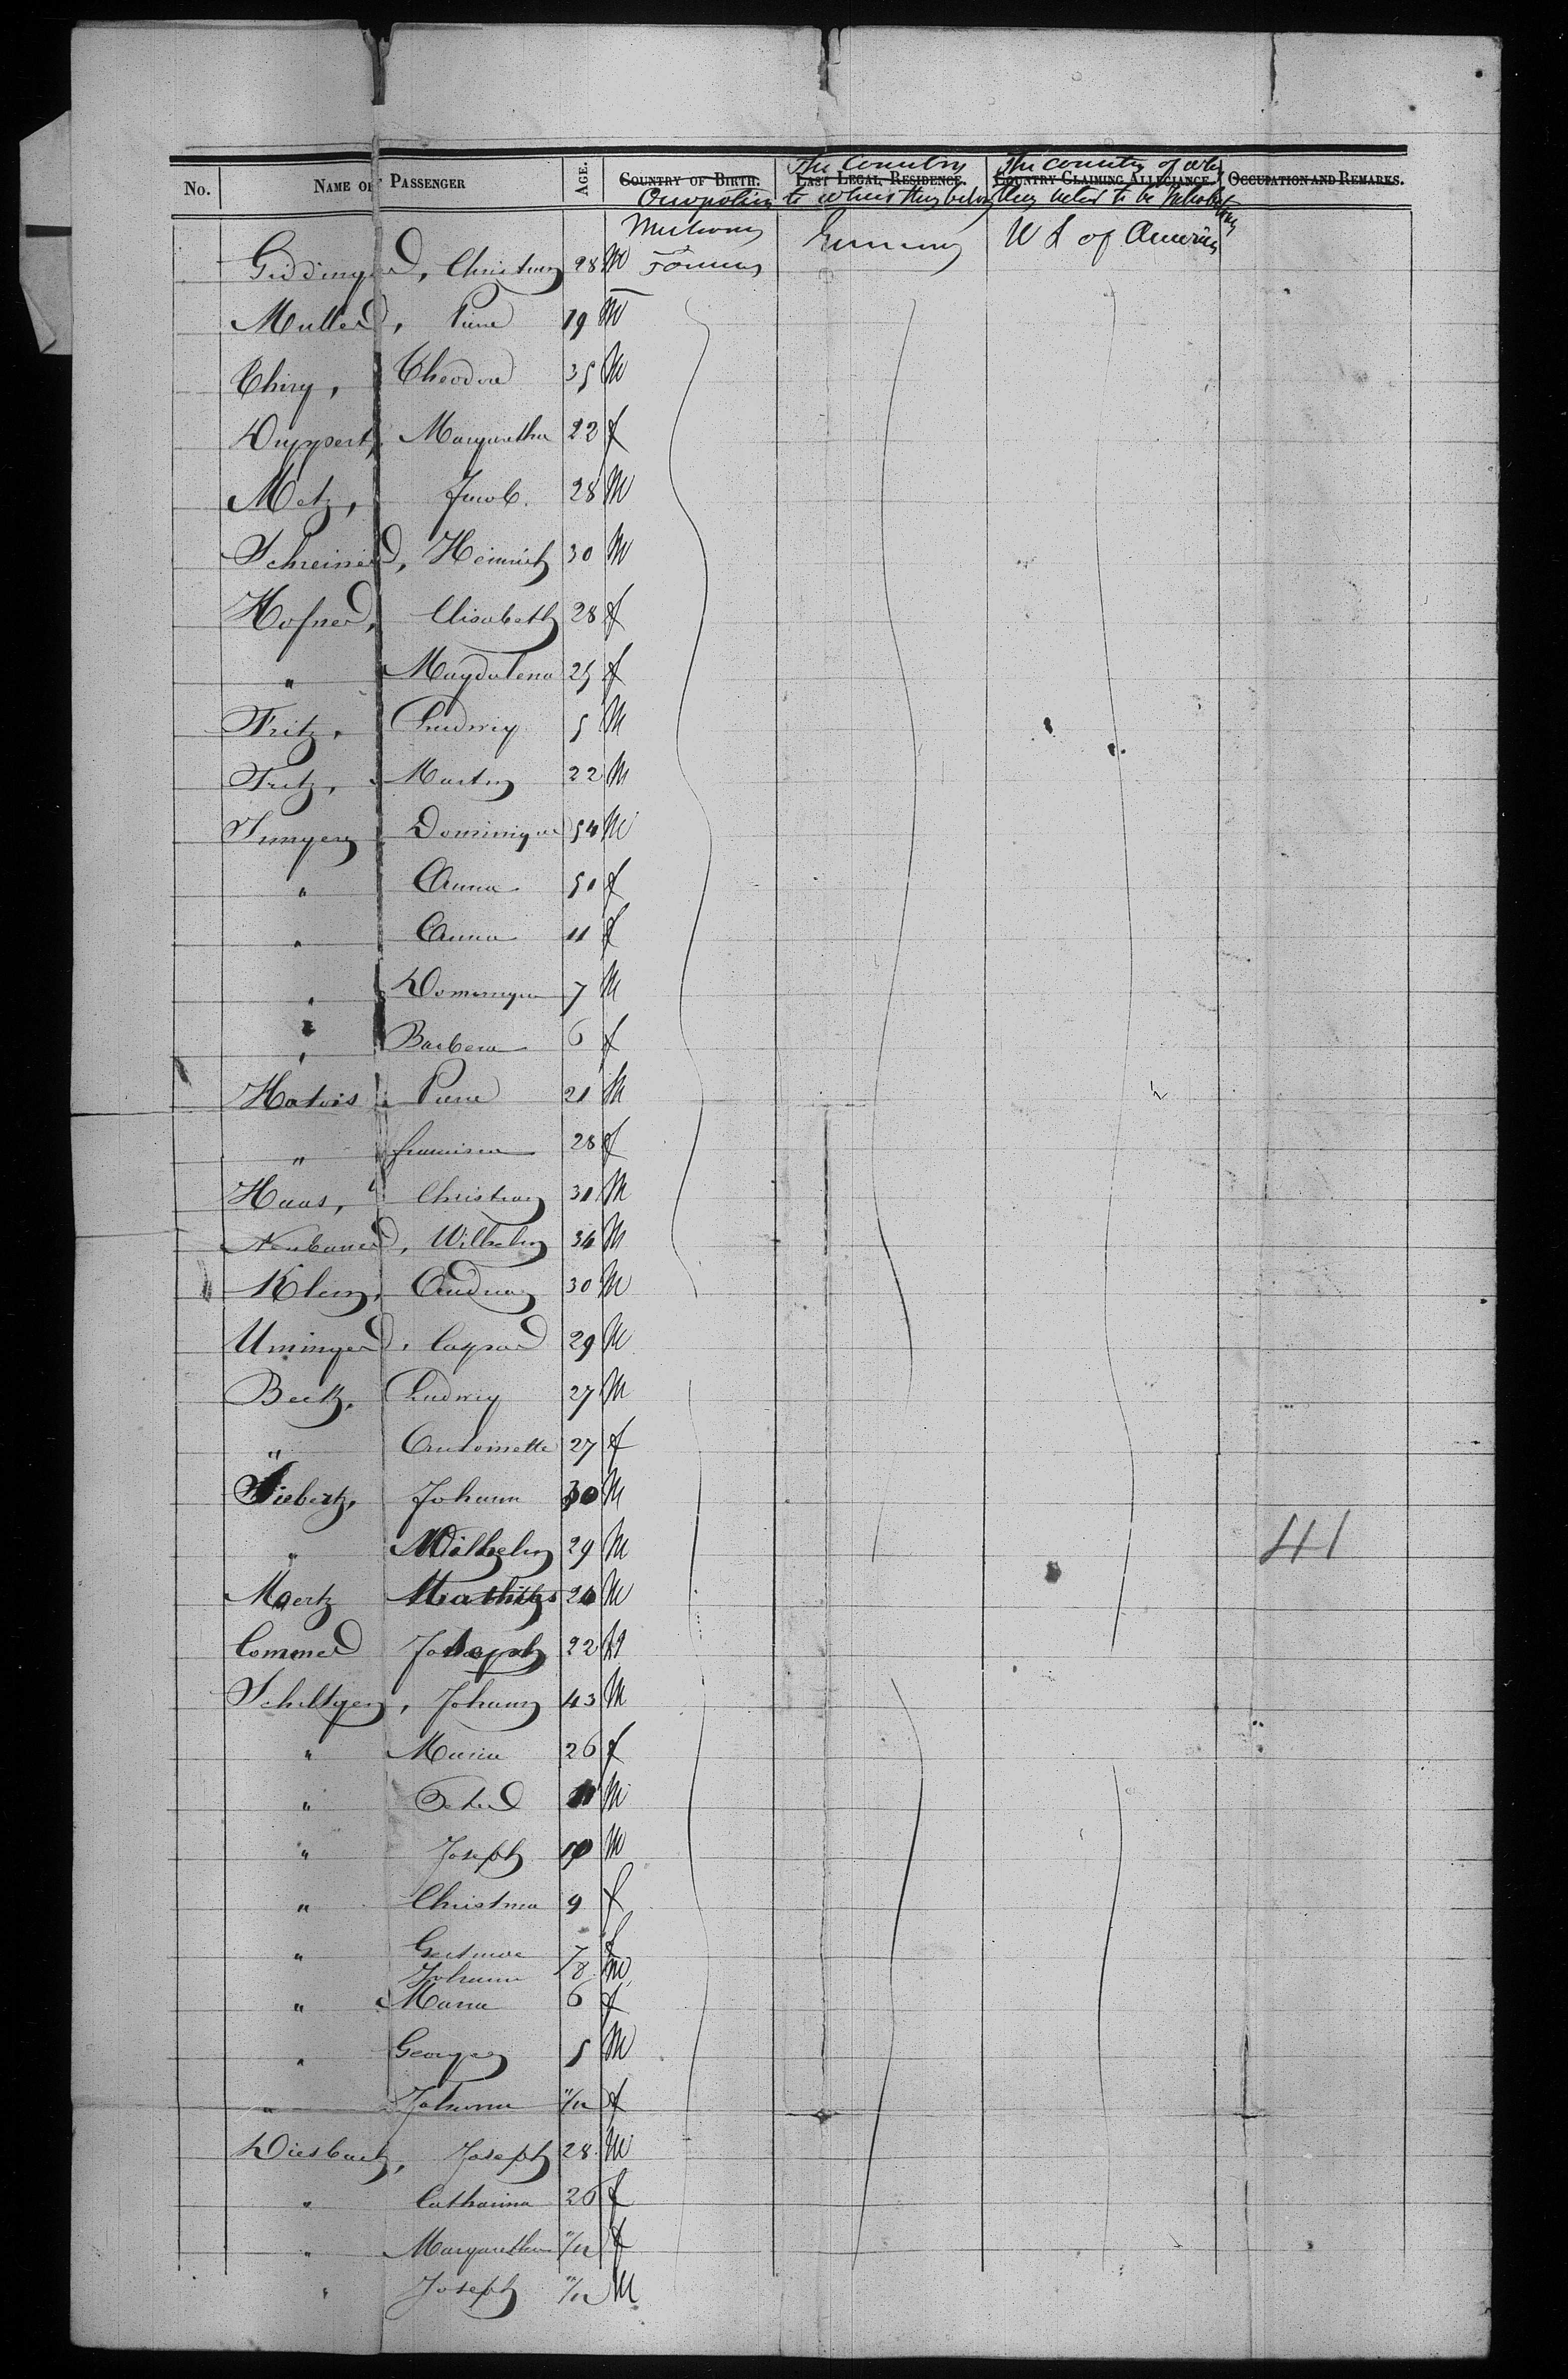 No. NAME OF PASSENGER AGE. COUNTRY OF BIRTH. LAST LEGAL RESIDENCE. COUNTRY CLAIMING ALLEGIANCE. OCCUPATION AND REMARKS.
The Country The country of
to they belong they to be
Germany U S of America
Christian 28 M
Muller, Pierre 19 M
Thiry, Theodore 35 M
Duppert, Margaretha 22 f
Metz, Jacob. 28 M
Schreiner, Heinrich 30 M
Hofner, Elisabeth 28 f
" Magdalena 25 f
Fritz, Ludwig 5 M
Fritz, Martin 22 M
Dominique 54 M
" Anna 50 f
" Anna 11 f
" Dominique 7 M
" Barbera 6 f
Hatois Pierre 21 M
" 28 f
Haas, Christian 31 M
Neubauer, Wilhelm 34 M
Andreas 30 M
Uminger, Caspar 29 M
Beck, Ludwig 27 M
" Antoinette 27 f
Siebertz, Johann 30 M
" Wilhelm 29 M
41
Mertz Mathias M
Commer Joseph 22 M
Schiltgen, Johann 43 M
" Maria 26 f
" Peter M
" Joseph 10 M
" Christina 9 f
" 7 f
Johann 8 M
" Maria 6 f
" Georges 5 M
" Johanna 11/12 f
Diesbach, Joseph 28 M
" Catharina 26 f
" Margaretha 11/12 f
" Joseph 11/12 M